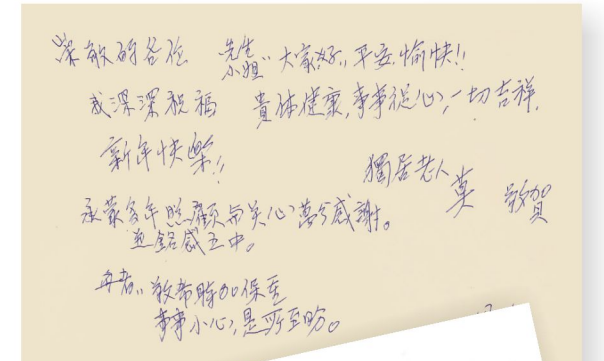 崇敬的各位 先生小姐,, 大家好,, 平安.愉快!!
我深深祝福 貴体健康,事事從心,一切吉祥.
新年快樂!!
獨居老人 莫 敬賀
承蒙多年照顧與关心,萬分感謝。
並銘感五中。
再者,, 敬希時加保重
事事小心,是所至盼。